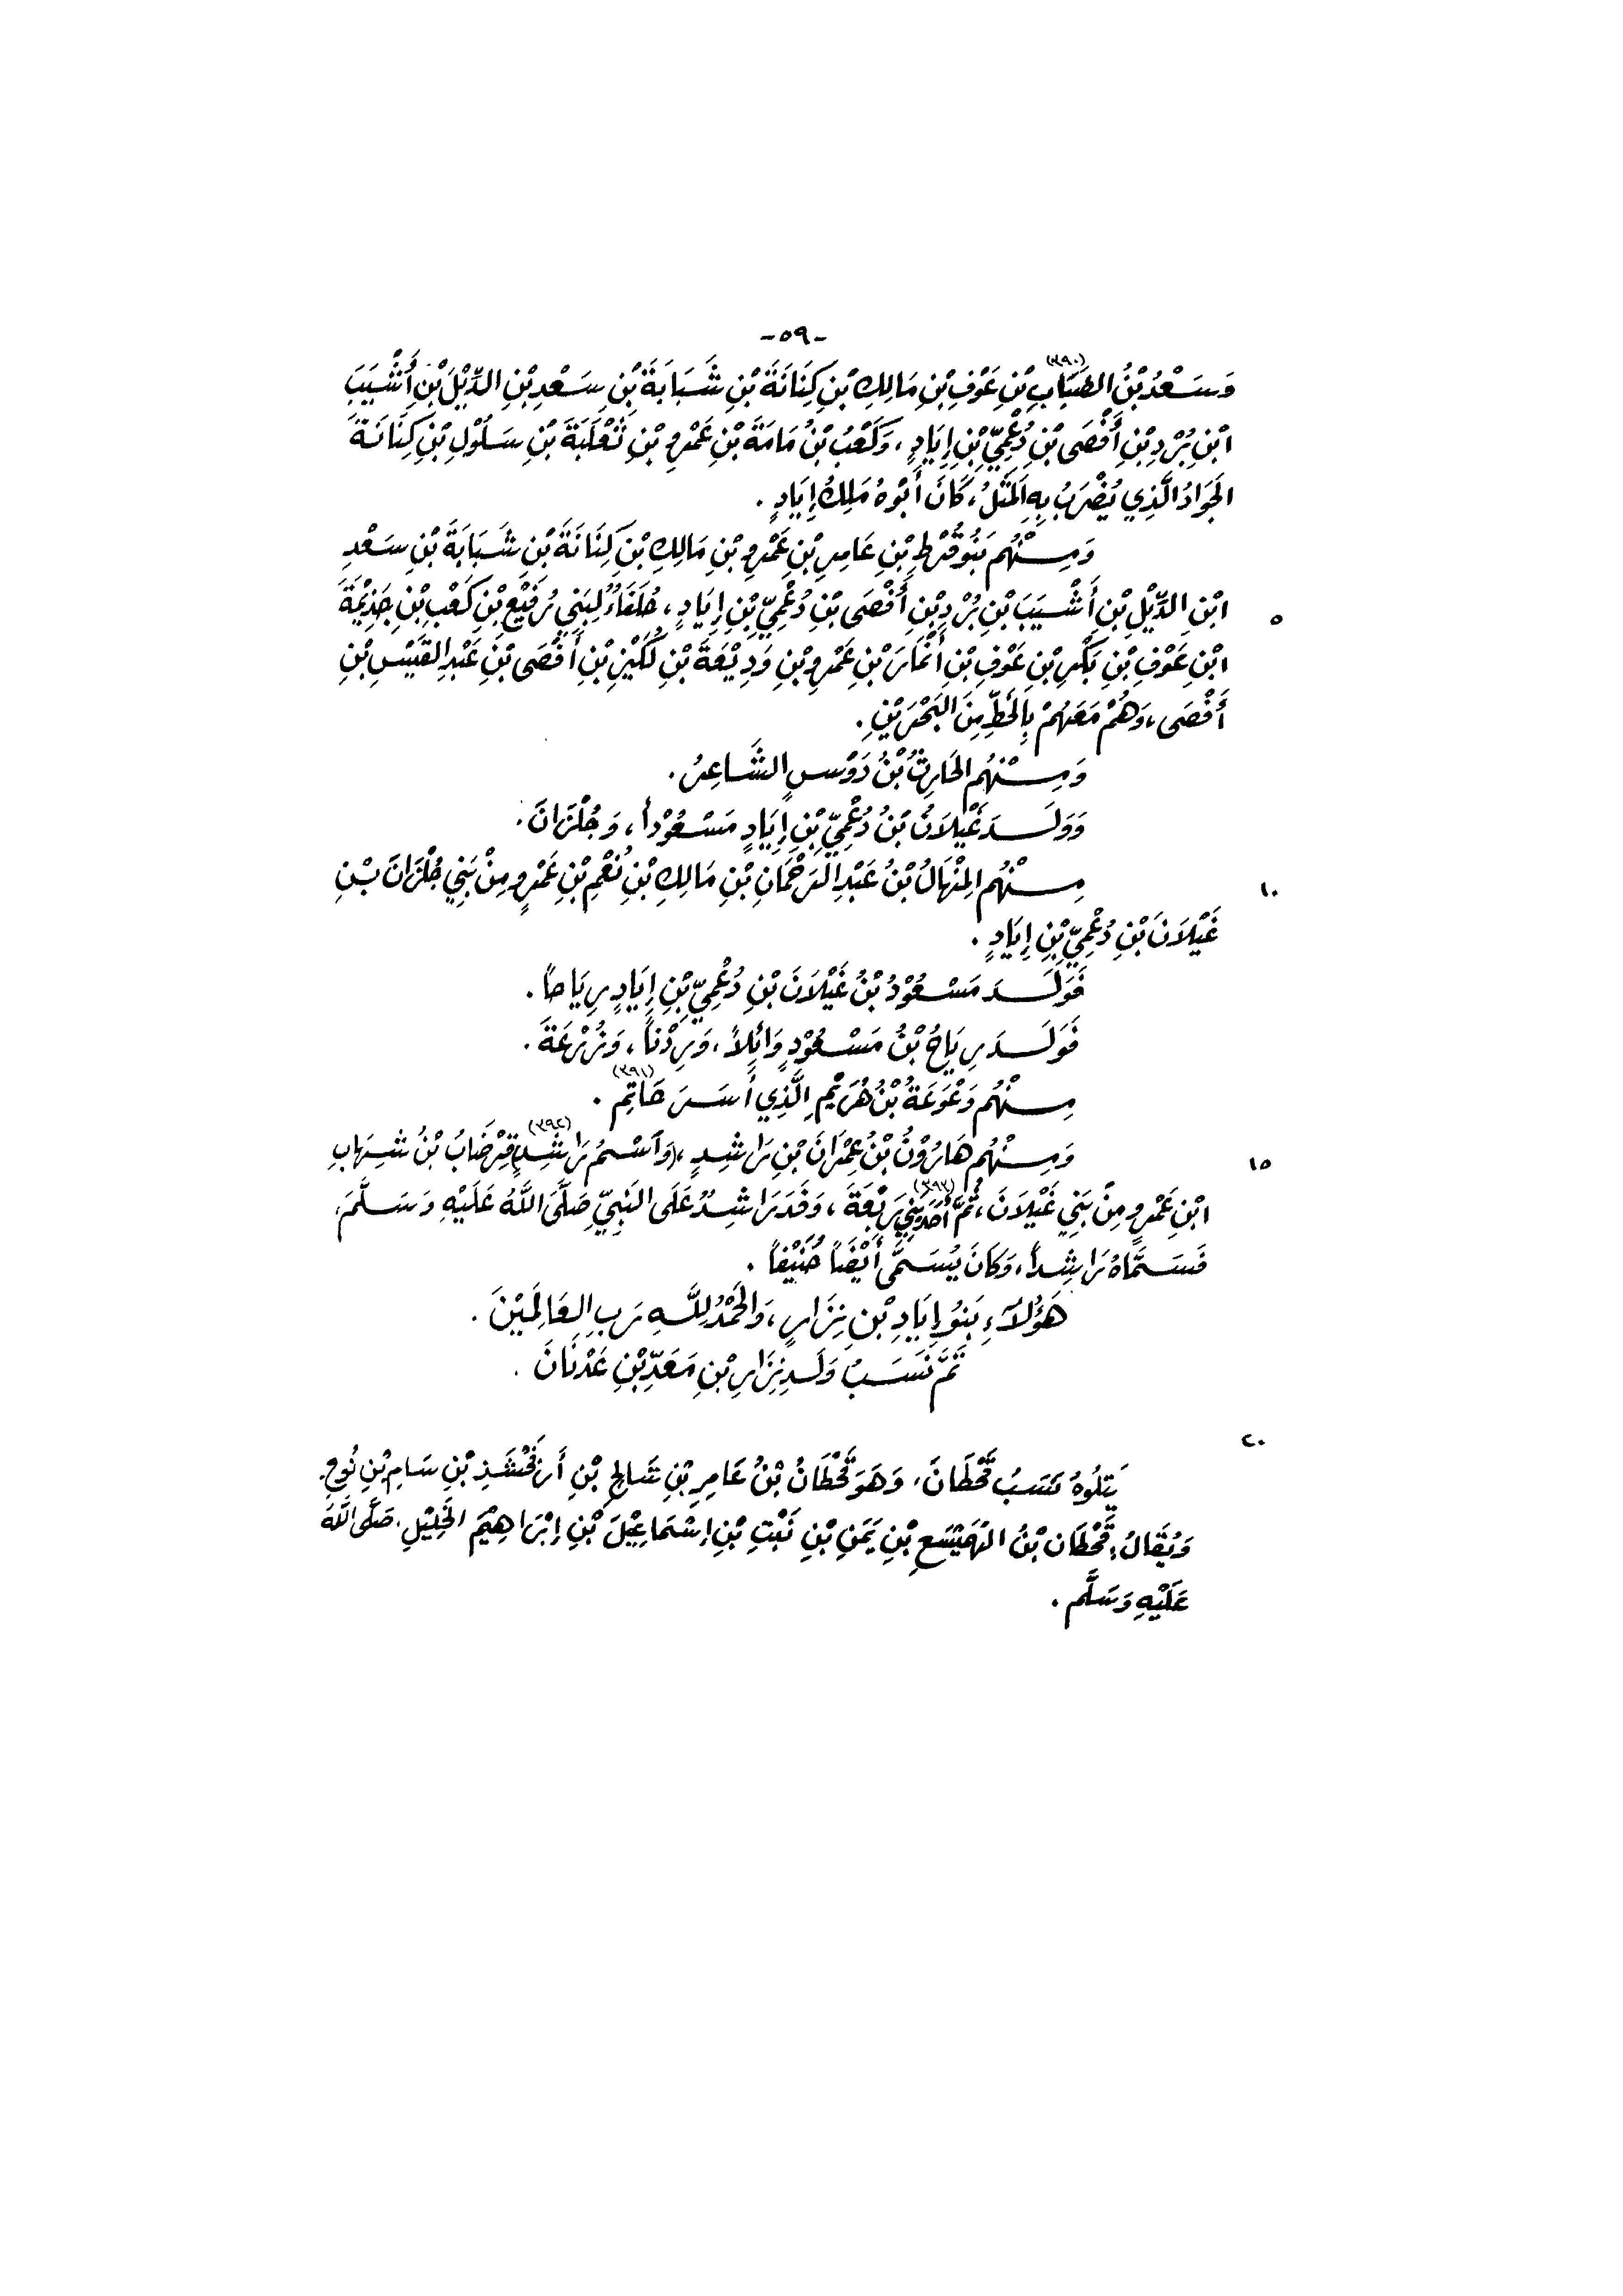 -٥٩-
وَسَعْدُ بْنُ الضَّبَابِ(٣٩٠) بْنِ عَوْفِ بْنِ مَالِكِ بْنِ كِنَانَةَ بْنِ شَبَابَةَ بْنِ سَعْدِ بْنِ الدِّيْلِ بْنِ أَشْيَبَ
ابْنِ بُرْدِ بْنِ أَفْصَى بْنِ دُعْمِيِّ بْنِ إِيَادٍ، وَكَعْبُ بْنُ مَامَةَ بْنِ عَمْرِو بْنِ ثَعْلَبَةَ بْنِ سَلُوْلِ بْنِ كِنَانَةَ
الجَوَادُ الَّذِي يُضْرَبُ بِهِ المَثَلُ، كَانَ أَبُوْهُ مَلِكُ إِيَادٍ.
وَمِنْهُم بَنُو قُرْطِ بْنِ عَامِرِ بْنِ عَمْرِو بْنِ مَالِكِ بْنِ كِنَانَةَ بْنِ شَبَابَةَ بْنِ سَعْدِ
٥ ابْنِ الدِّيْلِ بْنِ أَشْيَبَ بْنِ بُرْدِ بْنِ أَفْصَى بْنِ دُعْمِيِّ بْنِ إِيَادٍ، حُلَفَاءُ لِبَنِي رُفَيْعِ بْنِ كَعْبِ بْنِ جَذِيْمَةَ
ابْنِ عَوْفِ بْنِ بَكْرِ بْنِ عَوْفِ بْنِ أَنْمَارَ بْنِ عَمْرِو بْنِ وَدِيْعَةَ بْنِ لُكَيْزِ بْنِ أَفْصَى بْنِ عَبْدِ القَيْسِ بْنِ
أَفْصَى، وَهُمْ مَعَهُمْ بِالخَطِّ مِنَ البَحْرَيْنِ.
وَمِنْهُم الحَارِثُ بْنُ دَوْسٍ الشَّاعِرُ.
وَوَلَدَ غَيْلَانُ بْنُ دُعْمِيِّ بْنِ إِيَادٍ مَسْعُوْداً، وَجُلْزَانَ.
١٠ مِنْهُم المِنْهَالُ بْنُ عَبْدِ الرَّحْمَانِ بْنِ مَالِكِ بْنِ نُعْمِ بْنِ عَمْرٍو مِنْ بَنِي جُلْزَانَ بْنِ
غَيْلَانَ بْنِ دُعْمِيِّ بْنِ إِيَادٍ.
فَوَلَدَ مَسْعُوْدُ بْنُ غَيْلَانَ بْنِ دُعْمِيِّ بْنِ إِيَادٍ رِيَاحاً.
فَوَلَدَ رِيَاحُ بْنُ مَسْعُوْدٍ وَائِلاً، وَرِدْناً، وَزُرْعَةَ.
مِنْهُم وَعْوَعَةُ بْنُ هُرَيْمٍ الَّذِي أَسَرَ حَاتِم(٣٩١).
١٥ وَمِنْهُم هَارُوْنُ بْنُ عِمْرَانَ بْنِ رَاشِدٍ، (وَاَسْمُ رَاشِدٍ)(٣٩٢) قِرْضَابُ بْنُ شِهَابِ
ابْنِ عَمْرٍو مِنْ بَنِي غَيْلَانَ، ثُمَّ أَحَدُ بَنِي رَبْعَةَ(٣٩٣)، وَفَدَ رَاشِدٌ عَلَى النَبِيِّ صَلَّى اللَّهُ عَلَيْهِ وَسَلَّمَ،
فَسَمَّاهُ رَاشِداً، وَكَانَ يُسَمَّى أَيْضاً حُنَيْفاً.
هَؤُلَاءِ بَنُو إِيَادِ بْنِ نِزَارٍ، وَالحَمْدُ لِلَّهِ رَبِّ العَالَمِيْنَ.
تَمَّ نَسَبُ وَلَدِ نِزَارِ بْنِ مَعَدِّ بْنِ عَدْنَانَ.
٢٠ يَتْلُوهُ نَسَبُ قَحْطَانَ، وَهَوَ قَحْطَانُ بْنُ عَامِرِ بْنِ شَالِخِ بْنِ أَرْفَخْشَذِ بْنِ سَامِ بْنِ نُوحٍ.
وَيُقَالُ: قَحْطَان بْنُ الهَمَيْسَعِ بْنِ يَمَنِ بْنِ نَبْتِ بْنِ إِسْمَاعِيْلَ بْنِ إِبْرَاهِيْمَ الخَلِيْلِ، صَلَّى اللَّهُ
عَلَيْهِ وَسَلَّم.